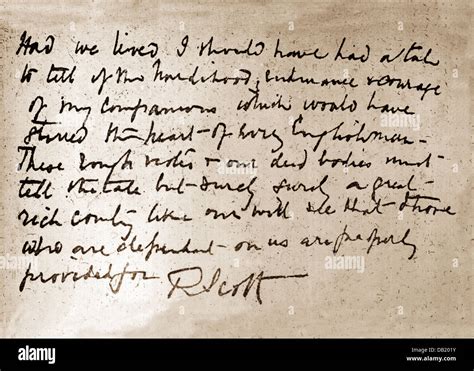 Had we lived I should have had a tale
to tell of the hardihood, endurance & courage
of my companions which would have
stirred the heart of every Englishman –
These rough notes & our dead bodies must
tell the tale but surely surely a great
rich country like ours will see that those
who are dependent on us are properly
provided for R. Scott
alamy
alamy
alamy
alamy stock photo
DB201Y
www.alamy.com